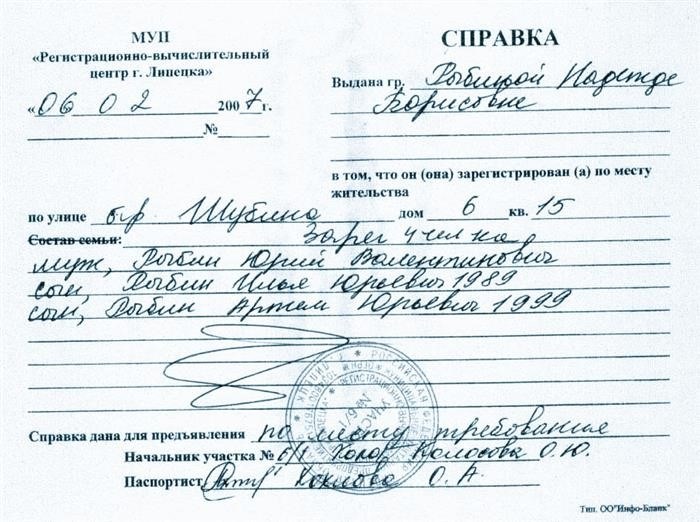 МУП
«Регистрационно-вычислительный
центр г. Липецка»
«06 02 2007 г.
№
СПРАВКА
Выдана гр. Рыбиной Надежде
Борисовне
в том, что он (она) зарегистрирован (а) по месту
жительства
по улице б-р Шубина дом 6 кв. 15
Состав семьи: Зарег 4 чел ка
муж, Рыбин Юрий Валентинович
сын, Рыбин Илья Юрьевич 1989
сын, Рыбин Артем Юрьевич 1999
Справка дана для предъявления по месту требования
Начальник участка № 6/1 Колосова О.Ю.
Паспортист О. А.
Тип. ОО"Инфо-Бланк"